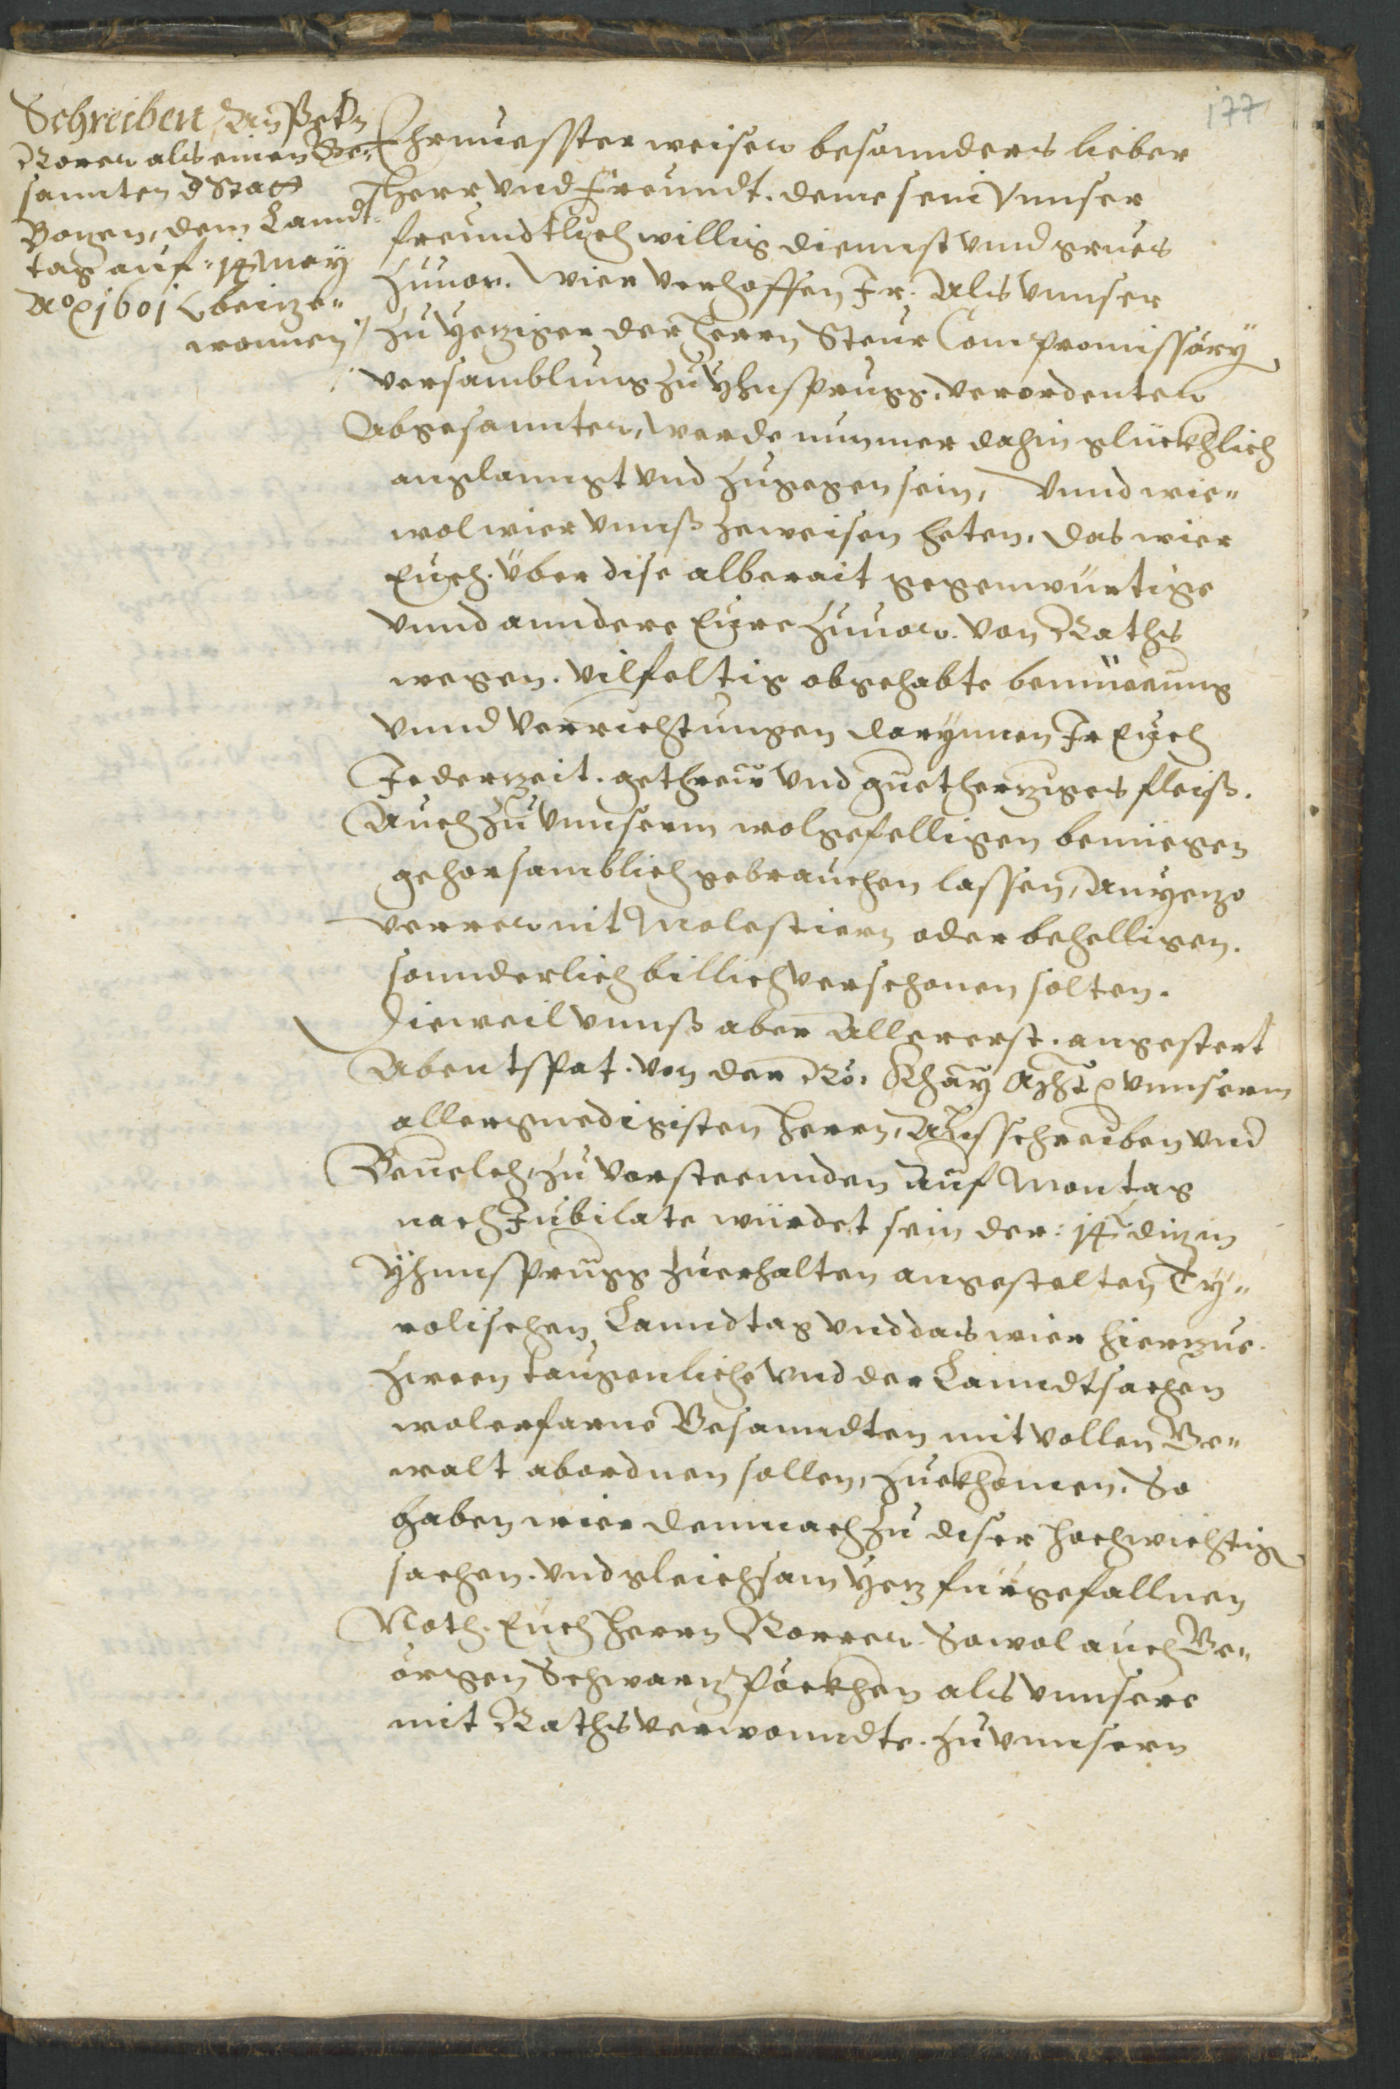 177
Schreiben, An Petn
Rorer als einen Ge-
sannten d Statt
Bozen, dem Lanndt-
tag auf: 14 May
Ao 1601 beizu-
wonnen
Ehrnuesster weiser besonnders lieber
Herr vnd Freundt. deme sein vnnser
freundtlich willig diennst vnd grues
zuuor. Wier verhoffen Jr. Als vnnser
zu yeziger der Herrn Steur Compromissary
versamblung zu Yhnsprugg, verordenter
Abgesannter, werde nunmer dahin glückhlich
anglanngt vnd zugegen sein, Vnnd wie-
wol wier vnnß zeweisen heten, das wier
Euch. über dise alberait gegenwürtige
vnnd anndere Eure zuuor. von Raths
wegen. vilfeltig obgehabte bemüeung
vnnd verrichtungen darynnen Jr Euch
Jederzeit. getrew vnd guetherziges fleiß.
Auch zu vnnserm wolgefelligen benüegen
gehorsamblich gebrauchen lassen, An yezo
verrer nit Molestiern oder behelligen.
sonnderlich billich verschonen solten.
Dieweil vnnß aber Allererst. angestert
Abent spat. von der Rö: Khay: Mht: vnnserm
allergnedigisten Herrn, Ausschreiben vnd
Beuelch, zu vorsteennden auf Montag
nach Jubilate würdet sein der: 14 diz in
Yhnnsprugg zuerhalten angestelten Ty-
rolischen Lanndtag vnd das wier hierzue.
zween taugenliche vnd der Lanndtsachen
wolerfarne Gesanndten mit vollen Ge-
walt abordnen sollen, zuekhomen. So
haben wier demnach zu diser hochwichtig
sachen. vnd gleichsam yez fürgefallnen
Noth. Euch Herrn Rorrer. Sowol auch Ge-
örgen Schwarz Pöckhen als vnnsere
mit Rathsverwonndte. zu vnnsern